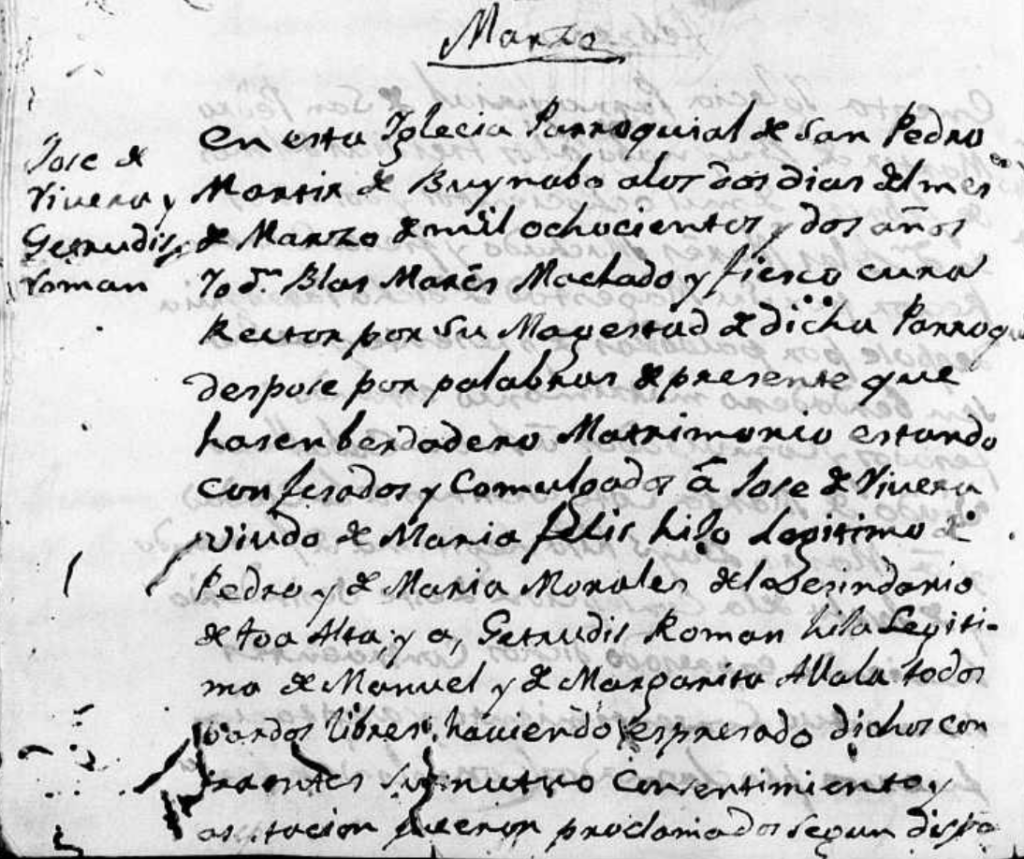 Marzo
Jose de
Vivera y
Getrudis
Roman
en esta Iglecia Parroquial de San Pedro
Martir de Buynabo a los dos dias del mes
de Marzo de mil ochocientos y dos años
Yo dn. Blas Marcs Machado y fiesco cura
Rector por Su Magestad de dicha Parroqu
despose por palabras de presente que
hasen berdadero Matrimonio estando
confesados y Comulgados â Jose de Vivera
viudo de Maria felis hijo Legitimo de
Pedro y de Maria Morales del Besindario
de toa Alta; y a, Getrudis Roman hija Legiti-
ma de Manuel y de Margarita Allala todos
pardos libres, haviendo espresado dichos con
traentes su mutuo Consentimiento y
asetacion fueron proclamados segun